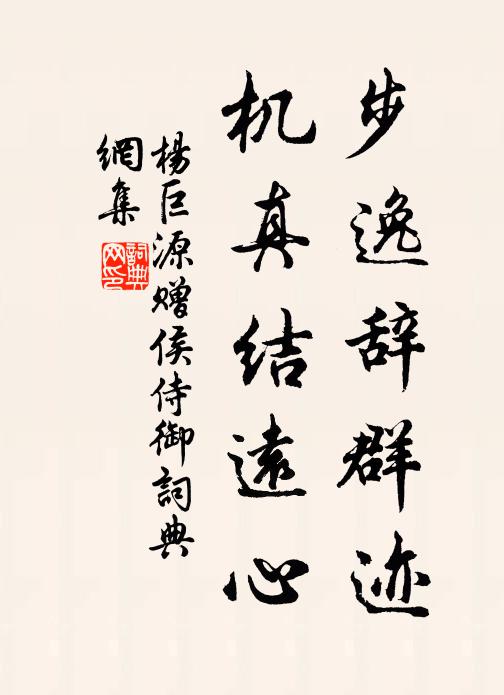 步逸辞群迹
机真结遠心
楊巨源赠侯侍御詞典
網集
詞典
网印